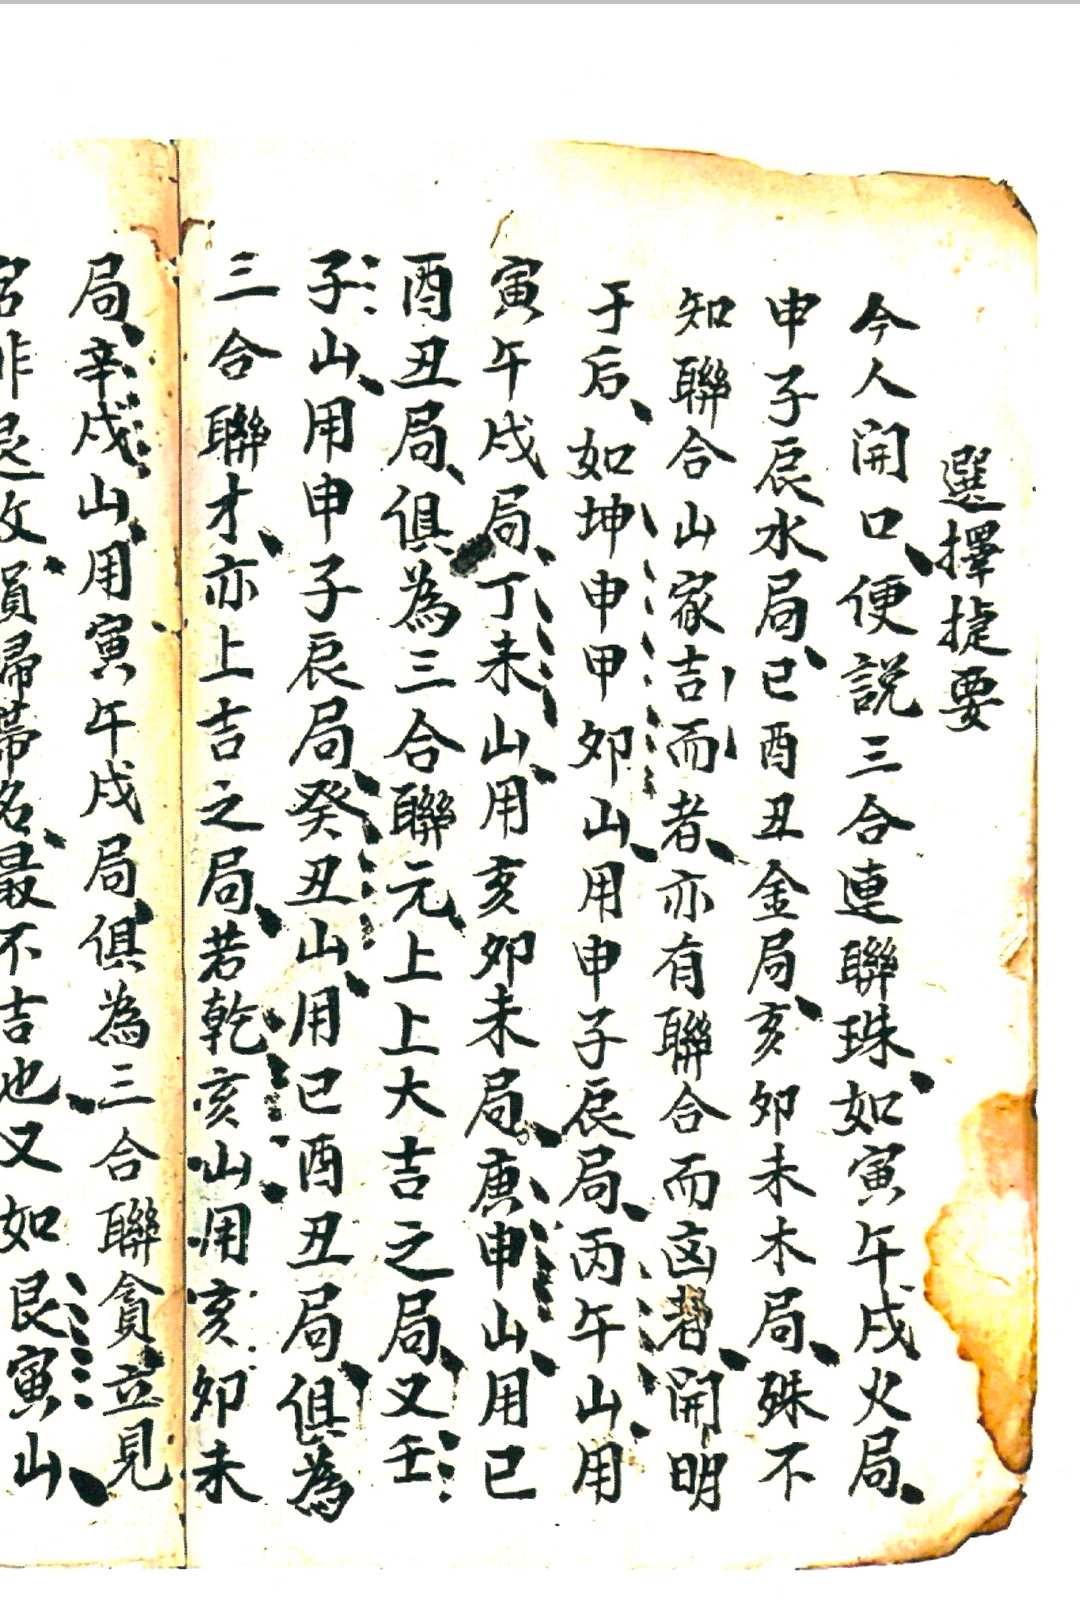 選擇捷要
今人開口、便説三合連聯珠、如寅午戌火局、
申子辰水局、巳酉丑金局、亥卯未木局、殊不
知聯合山家吉而者、亦有聯合而凶者、開明
于后、如坤申甲卯山、用申子辰局、丙午山、用
寅午戌局、丁未山、用亥卯未局、庚申山、用巳
酉丑局、俱為三合聯元、上上大吉之局、又壬
子山、用申子辰局、癸丑山、用巳酉丑局、俱為
三合聯才、亦上吉之局、若乾亥山、用亥卯未
局、辛戌山、用寅午戌局、俱為三合聯貪、並見
不吉也、又如艮寅山、